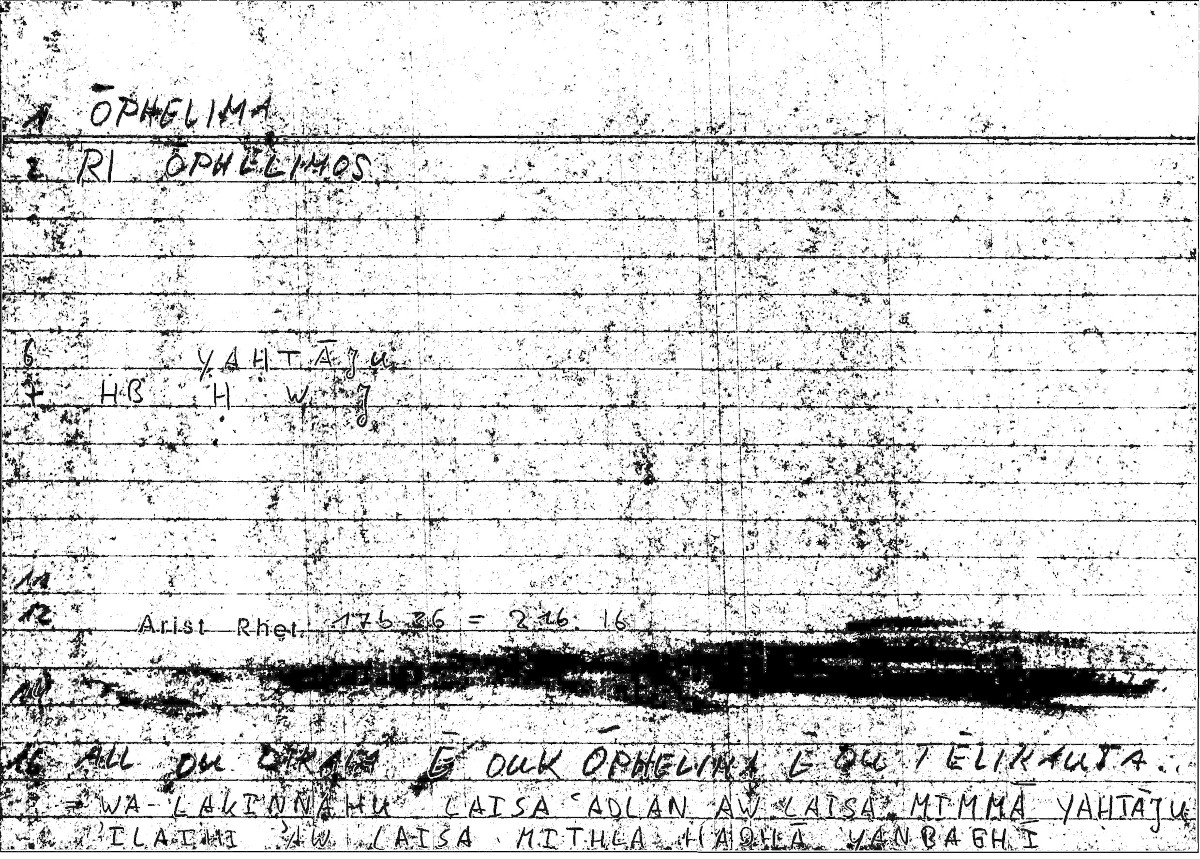 1 ŌPHELIMA
2 RI ŌPHELIMOS
6 YAHTĀJU
7 HB Ḥ W J
11
12 Arist Rhet. 17b 26 = 216. 16
14
16 ALL OU DIKAIA Ē OUK ŌPHELIMA Ē OU TĒLIKAUTA..
= WA-LAKINNAHU LAISA ʿADLAN AW LAISA MIMMĀ YAHTĀJU
ʾILAIHI ʾAW LAISA MITHLA HĀDHĀ YANBAGHĪ